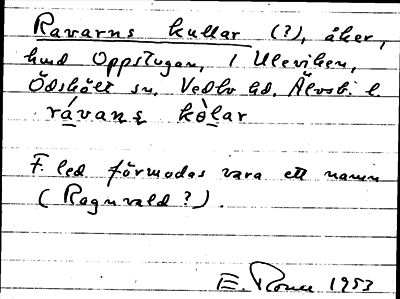 Ravarns kullar (?), åker,
hmd Oppstugan, 1 Uleviken,
Ödskölt sn. Vedbo hd. Älvsb. l.
rávans kòlar
F. led förmodas vara ett namn
(Ragnvald?).
E. 1953